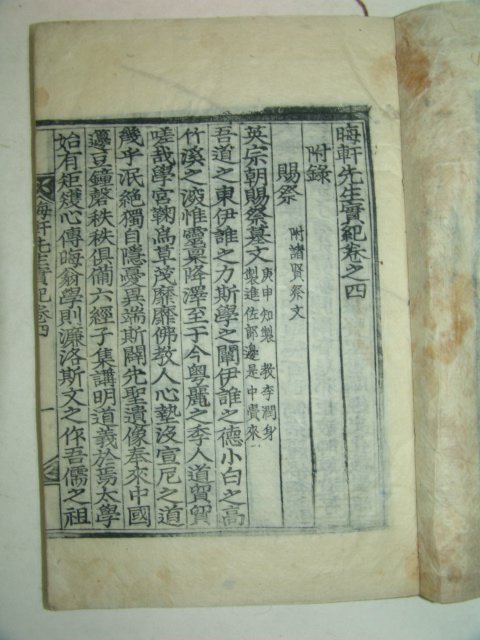 晦軒先生實紀卷之四
附錄
賜祭 附諸賢祭文
英宗朝賜祭墓文 庚申知製 教李潤身
製進佐郎邊是中賚來
吾道之東伊誰之力斯學之闡伊誰之德小白之高
竹溪之深惟靈 降澤至于今粤麗之季人道貿貿
嗟哉學宮鞠爲草茂靡靡佛教人心墊沒宣尼之道
幾乎泯絶獨自隱憂異端斯闢先聖遺像奉來中國
籩豆鐘磬秩秩俱備六經子集講明道義於焉太學
始有矩矱心傳晦翁學則濂洛斯文之作吾儒之祖
晦軒先生實紀卷四
一